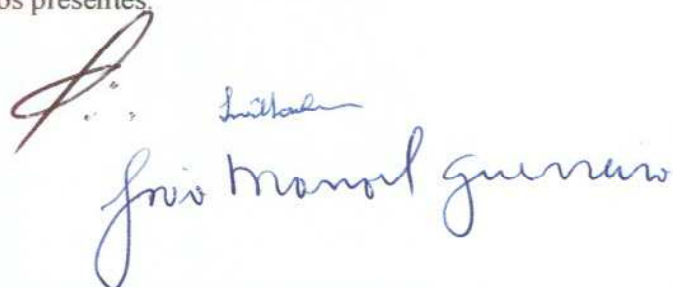 os presentes.
João Manoel Guerreiro